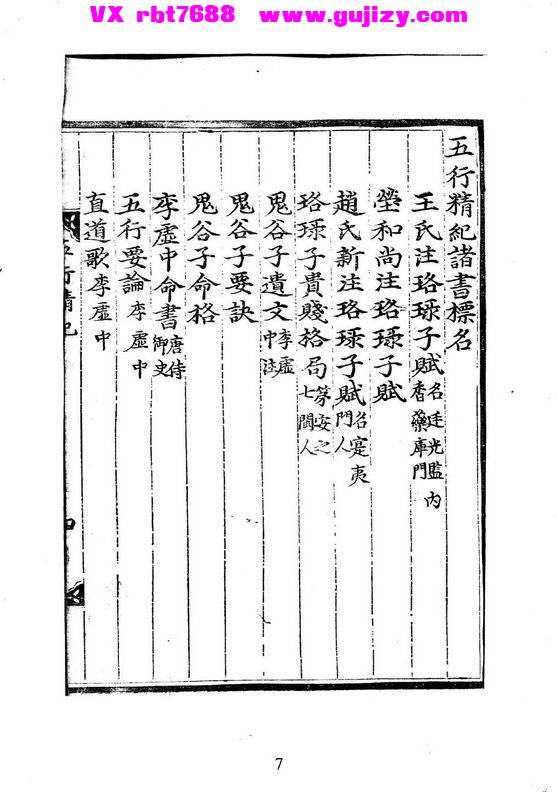 VX rbt7688 www.gujizy.com
五行精紀諸書標名
王氏注珞琭子賦名廷光監內香藥庫門
瑩和尚注珞琭子賦
趙氏新注珞琭子賦名寔夷門人
珞琭子貴賤格局
鬼谷子遺文李虛中注
鬼谷子要訣
鬼谷子命格
李虛中命書唐侍御史
五行要論李虛中
直道歌李虛中
五行精紀
四
7